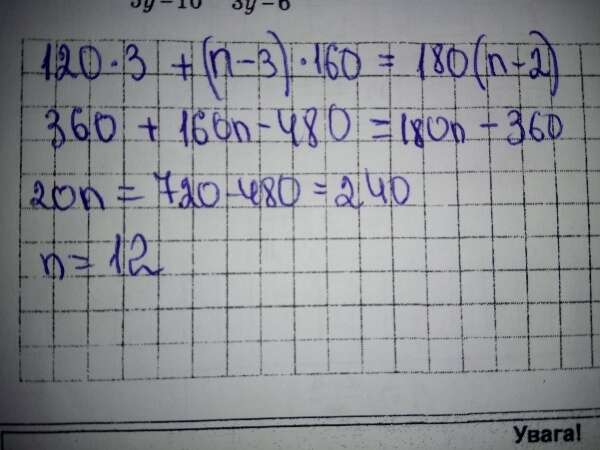 5y-10 3y-6
120·3 + (n-3)·160 = 180(n-2)
360 + 160n - 480 = 180n - 360
20n = 720-480 = 240
n = 12
Увага!